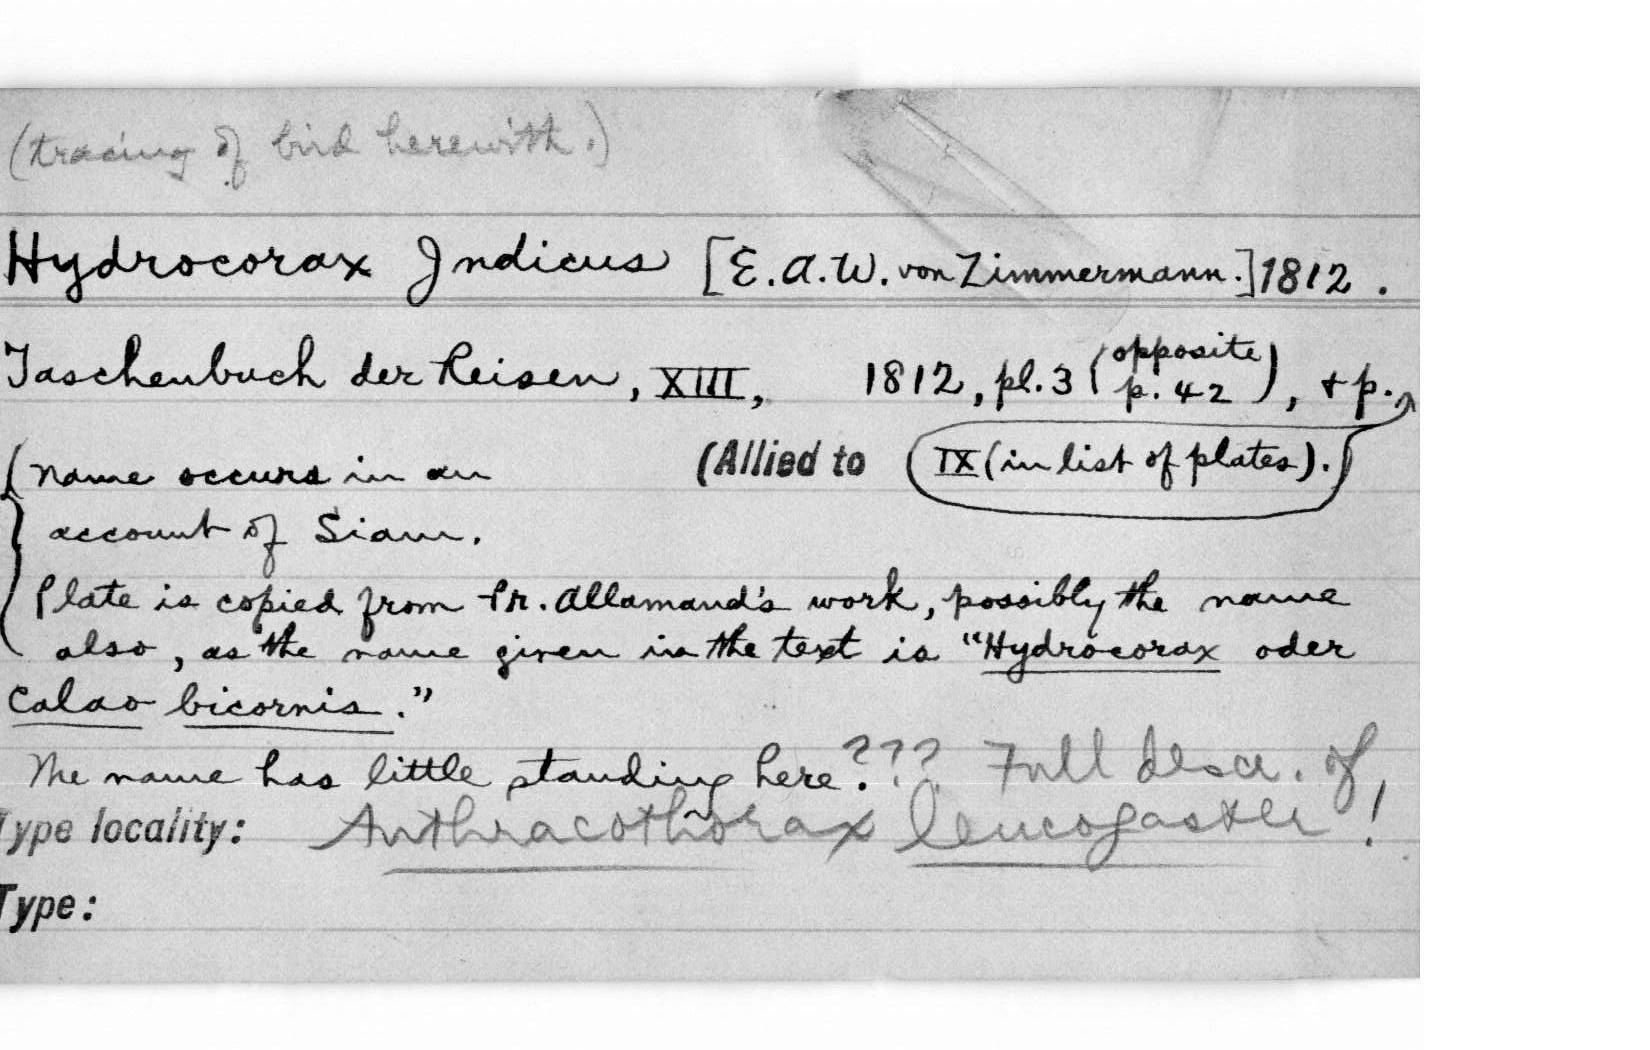 (tracing of bird herewith.)
Hydrocorax Indicus [E.A.W. von Zimmermann.] 1812.
Taschenbuch der Reisen, XIII, 1812, pl. 3 (opposite p. 42), + p.
(Name occurs in an (Allied to IX (in list of plates).
account of Siam.
Plate is copied from Pr. Allamand's work, possibly the name
also, as the name given in the text is "Hydrocorax oder
Calao bicornis."
The name has little standing here. ??? Full descr. of
Type locality: Anthracothorax leucogaster!
Type: